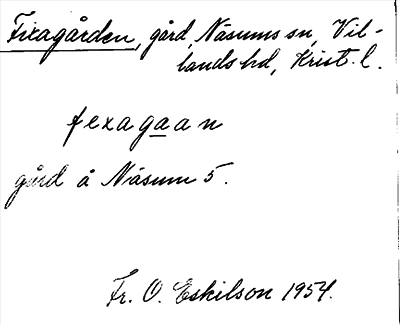 Fixagården, gård, Näsums sn, Vil-
lands hd, Krist. l.
fexagaan
gård å Näsum 5.
Fr. O. Eskilson 1954.